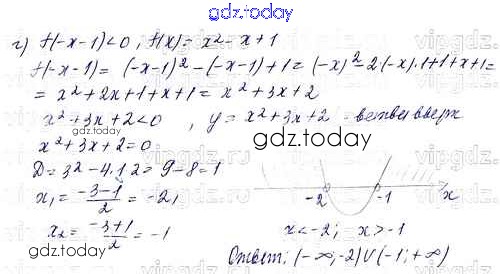 gdz.today
г) f(-x-1)<0, f(x)=x²-x+1
f(-x-1)=(-x-1)²-(-x-1)+1=(-x)²-2·(-x)·1+1+x+1=
=x²+2x+1+x+1=x²+3x+2
x²+3x+2<0, y=x²+3x+2 - ветви вверх
gdz.today
x²+3x+2=0
D=3²-4·1·2=9-8=1
x₁=(-3-1)/2=-2,
-2 -1 x
x₂=(-3+1)/2=-1
x<-2; x>-1
Ответ: (-∞;-2)∪(-1;+∞)
gdz.today